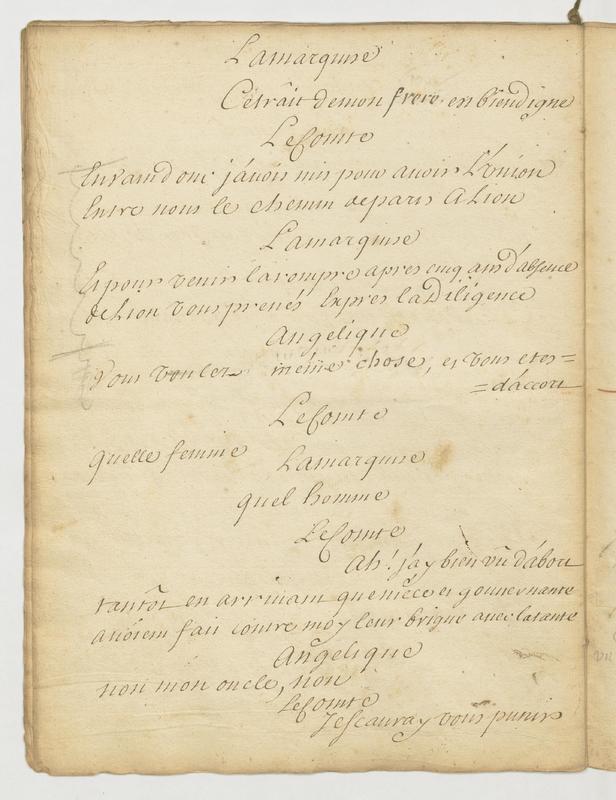 Lamarquise
Cetrait demon frere, est biendigne
LeComte
Envaind onc j'avois mis pour avoir L'Union
Entre nous le chemin deparis A Lion
Lamarquise
Et pour venir larompre apres cinq ans d'absence
de Lion vous prenés Exprès la Diligence
Angelique
Vous voulez même chose, et vous etes=
=d'accort
LeComte
quelle femme
Lamarquise
quel homme
LeComte
Ah! j'ay bien vû d'abort
tantôt en arrivant que niéce et gouvernante
avoient fait contre moy leur brigue avec latante
Angelique
non mon oncle, non
LeComte
Jescauray vous punir